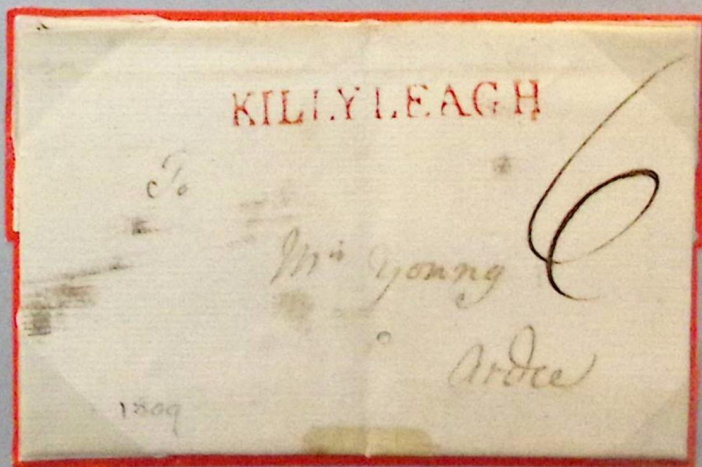 KILLYLEAGH
6
To
Mrs Young
Ardee
1809